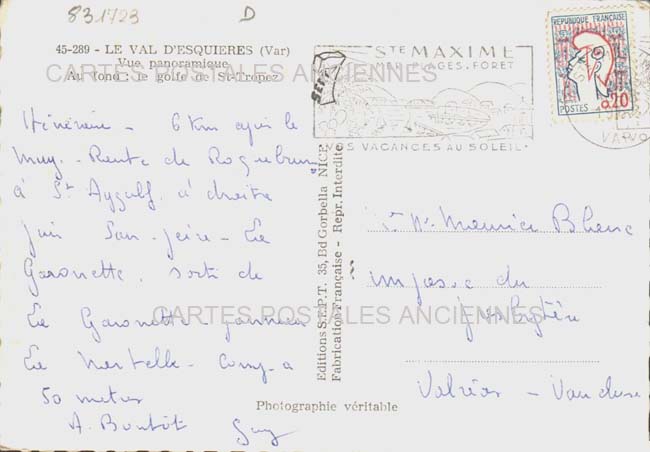 831723
D
45-289 - LE VAL D'ESQUIERES (Var)
Vue panoramique
Au fond : le golfe de St-Tropez
CARTES POSTALES ANCIENNES
Itinéraire - 6 Km après le
Muy - Route de Roquebrune
à St Aygulf, à droite
puis San-Peire - La
Garonette, sorti de
La Garonette panneau
La Nartelle - Camp a
50 metres
A. Bientôt Guy
STE MAXIME
MER. PLAGES. FORET
VOS VACANCES AU SOLEIL
REPUBLIQUE FRANÇAISE
POSTES 0,20
VAR
Editions S.E.P.T. 35, Bd Gorbella NICE
Fabrication Française - Repr. Interdite
Mr Maurice Blanc
impasse du
CARTES POSTALES ANCIENNES
Valréas - Vaucluse
Photographie véritable